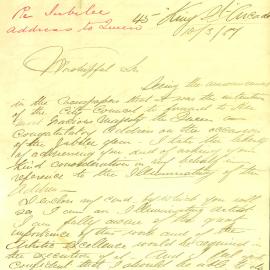 Re Jubilee
Address to Queen
45 King St Arcade
10/3/87
Worshipful Sir
Seeing the announcement
in the Newspapers that it was the intention
of the City Council to forward to Her
Most Gracious Majesty the Queen an
Congratulatory Address on the occasion
of the Jubilee year - I take the liberty
of addressing you and asking your
kind consideration in my behalf in
reference to the Illuminating of the
Address -
I enclose my card, by which you will
see I am an Illuminating artist
I am fully aware of the great
importance of this work and of the
Artistic excellence would be required in
the execution of it. And I feel
confident that I should be able to